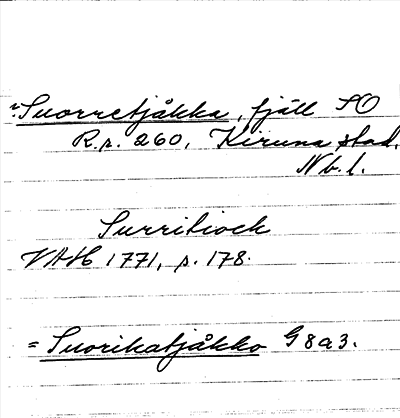 Suorretjåkka, fjäll SO
R.s. 260, Kiruna stad.
Nb.l.
Surritiock
VAH 1771, s. 178.
= Suorikatjåkko G8a3.